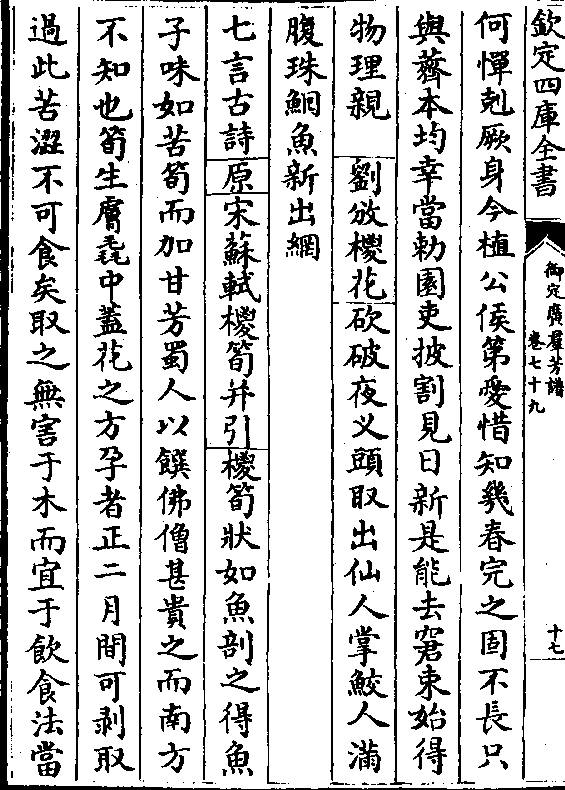 欽定四庫全書
御定廣羣芳譜
卷七十九
十七
何憚剋厥身今植公侯第愛惜知幾春完之固不長只
與薺本均幸當勅園吏披割見日新是能去窘束始得
物理親 劉攽椶花砍破夜义頭取出仙人掌鮫人滿
腹珠鮦魚新出網
七言古詩原宋蘇軾椶筍并引椶筍狀如魚剖之得魚
子味如苦筍而加甘芳蜀人以饌佛僧甚貴之而南方
不知也筍生膚毳中蓋花之方孕者正二月間可剥取
過此苦澀不可食矣取之無害于木而宜于飲食法當